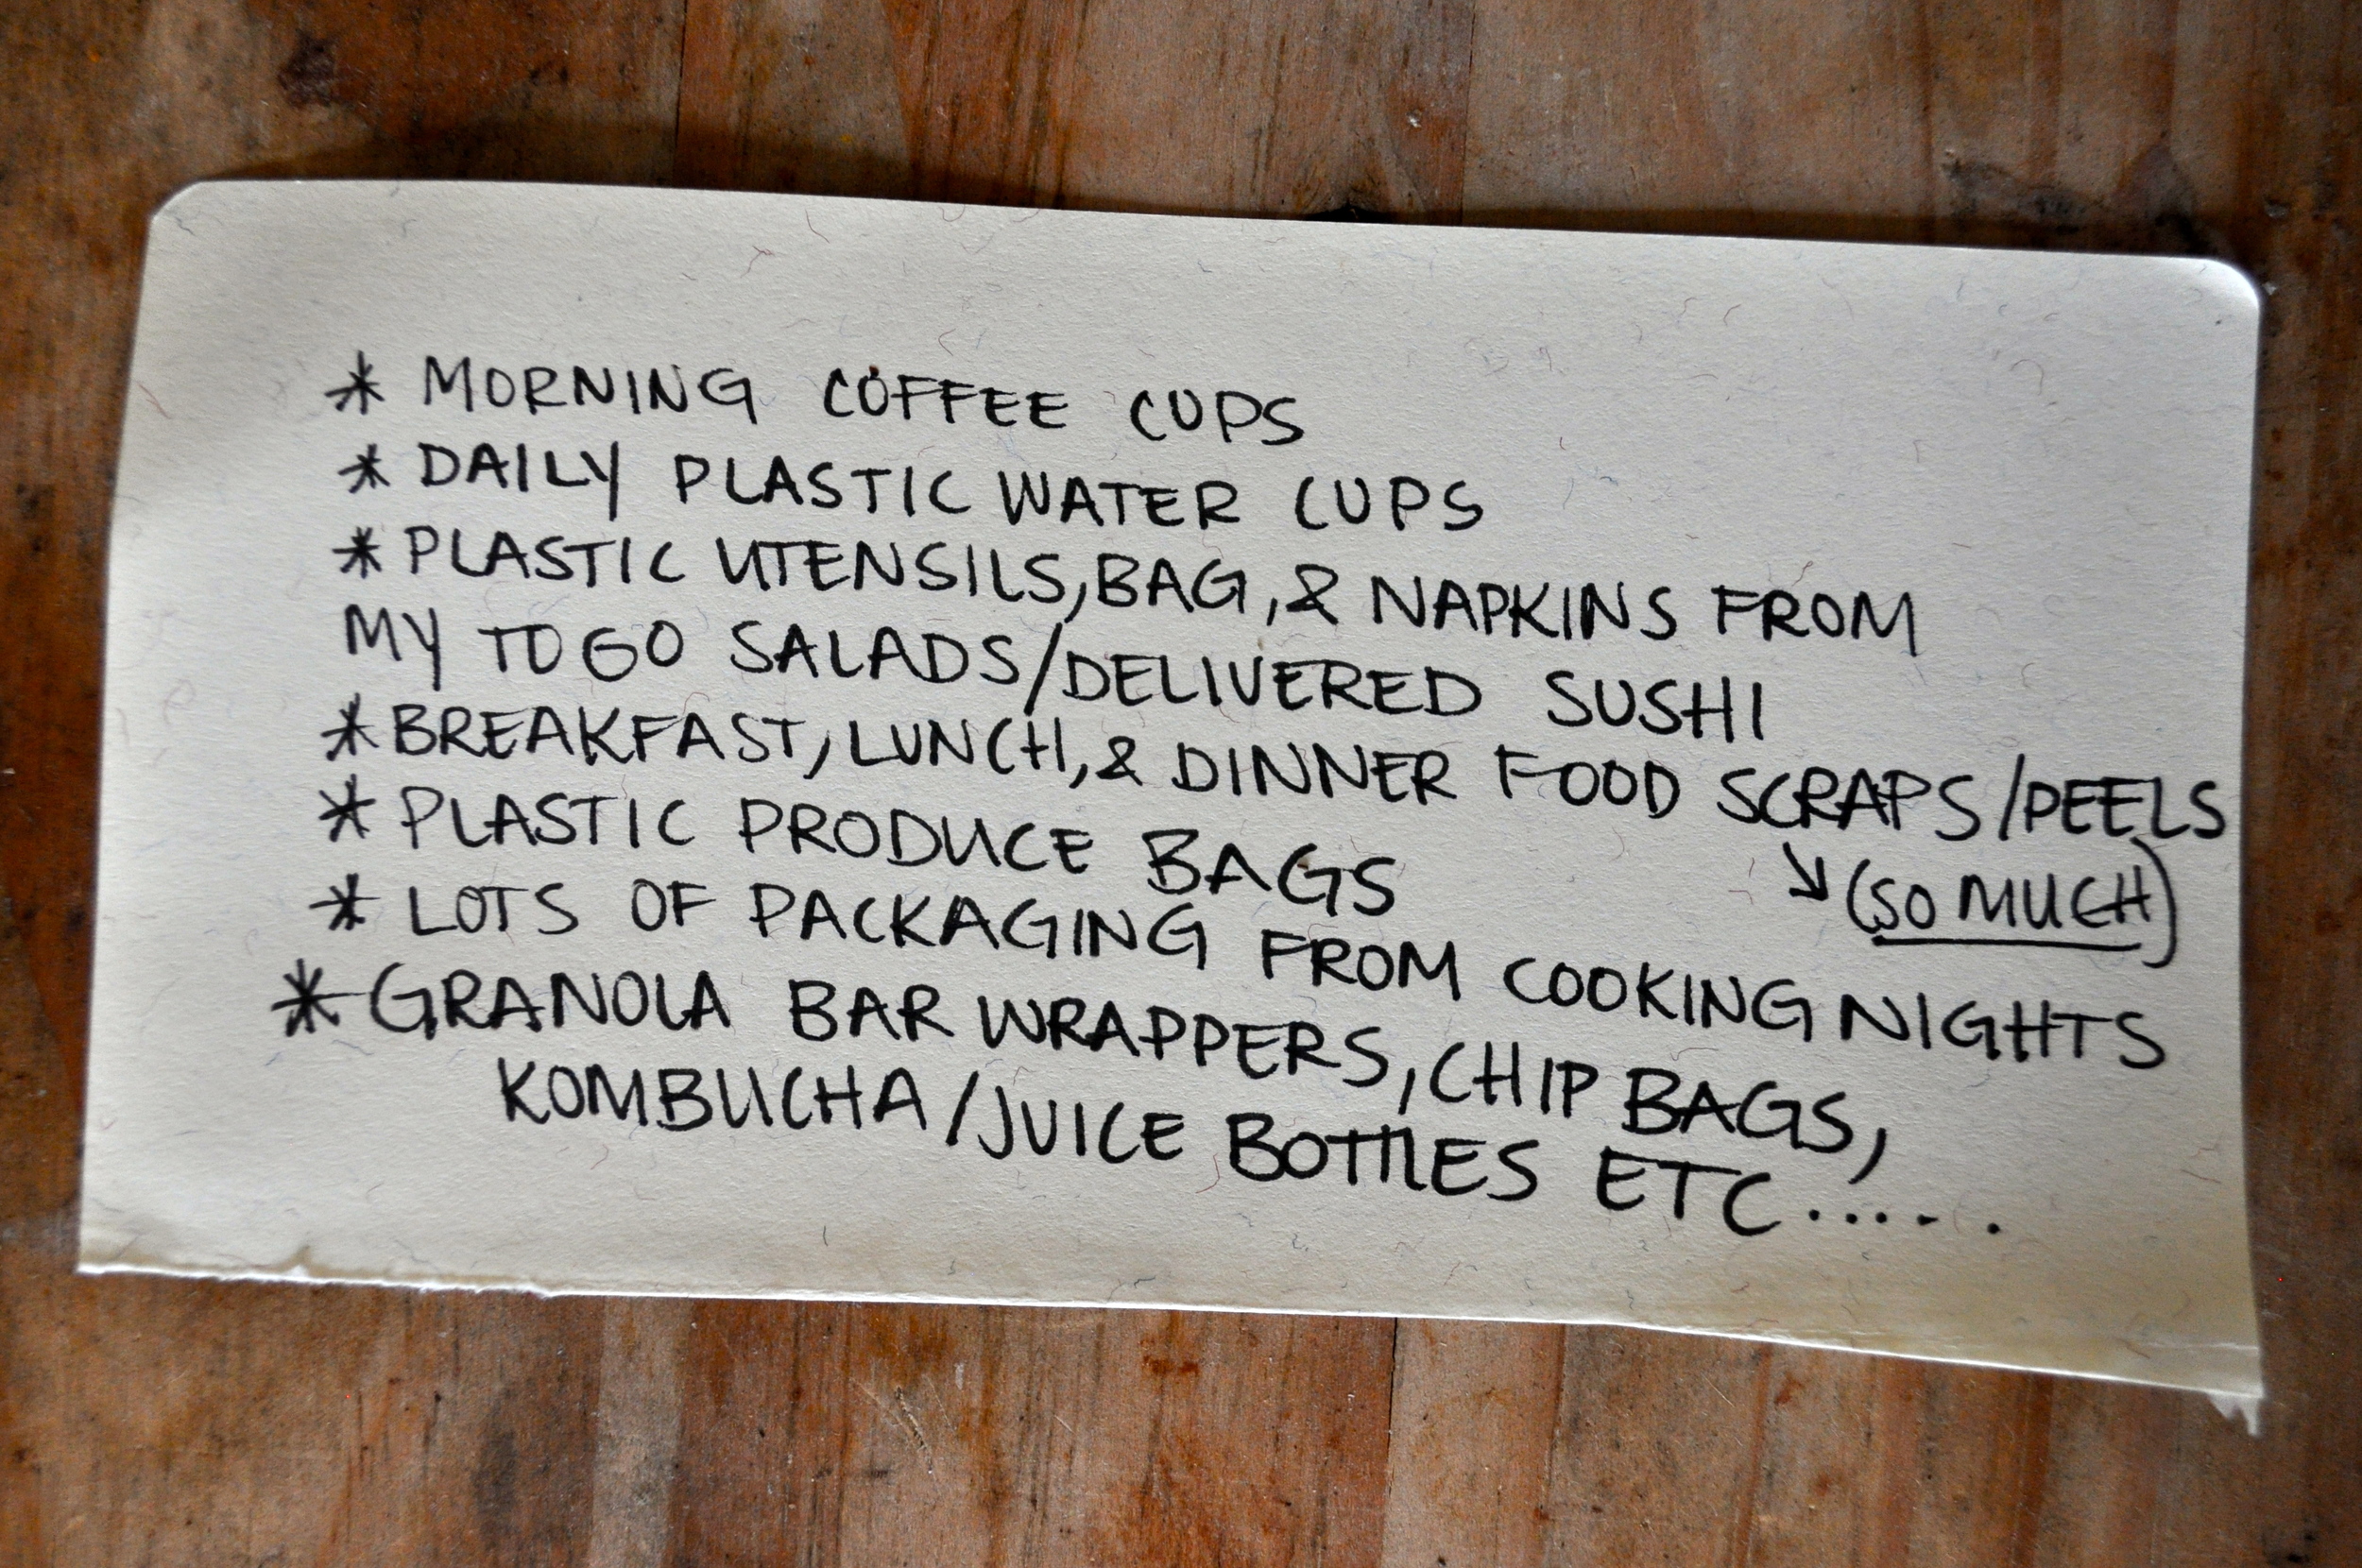 * MORNING COFFEE CUPS
* DAILY PLASTIC WATER CUPS
* PLASTIC UTENSILS, BAG, & NAPKINS FROM
MY TO GO SALADS/DELIVERED SUSHI
* BREAKFAST, LUNCH, & DINNER FOOD SCRAPS/PEELS
↘ (SO MUCH)
* PLASTIC PRODUCE BAGS
* LOTS OF PACKAGING FROM COOKING NIGHTS
* GRANOLA BAR WRAPPERS, CHIP BAGS,
KOMBUCHA/JUICE BOTTLES ETC......